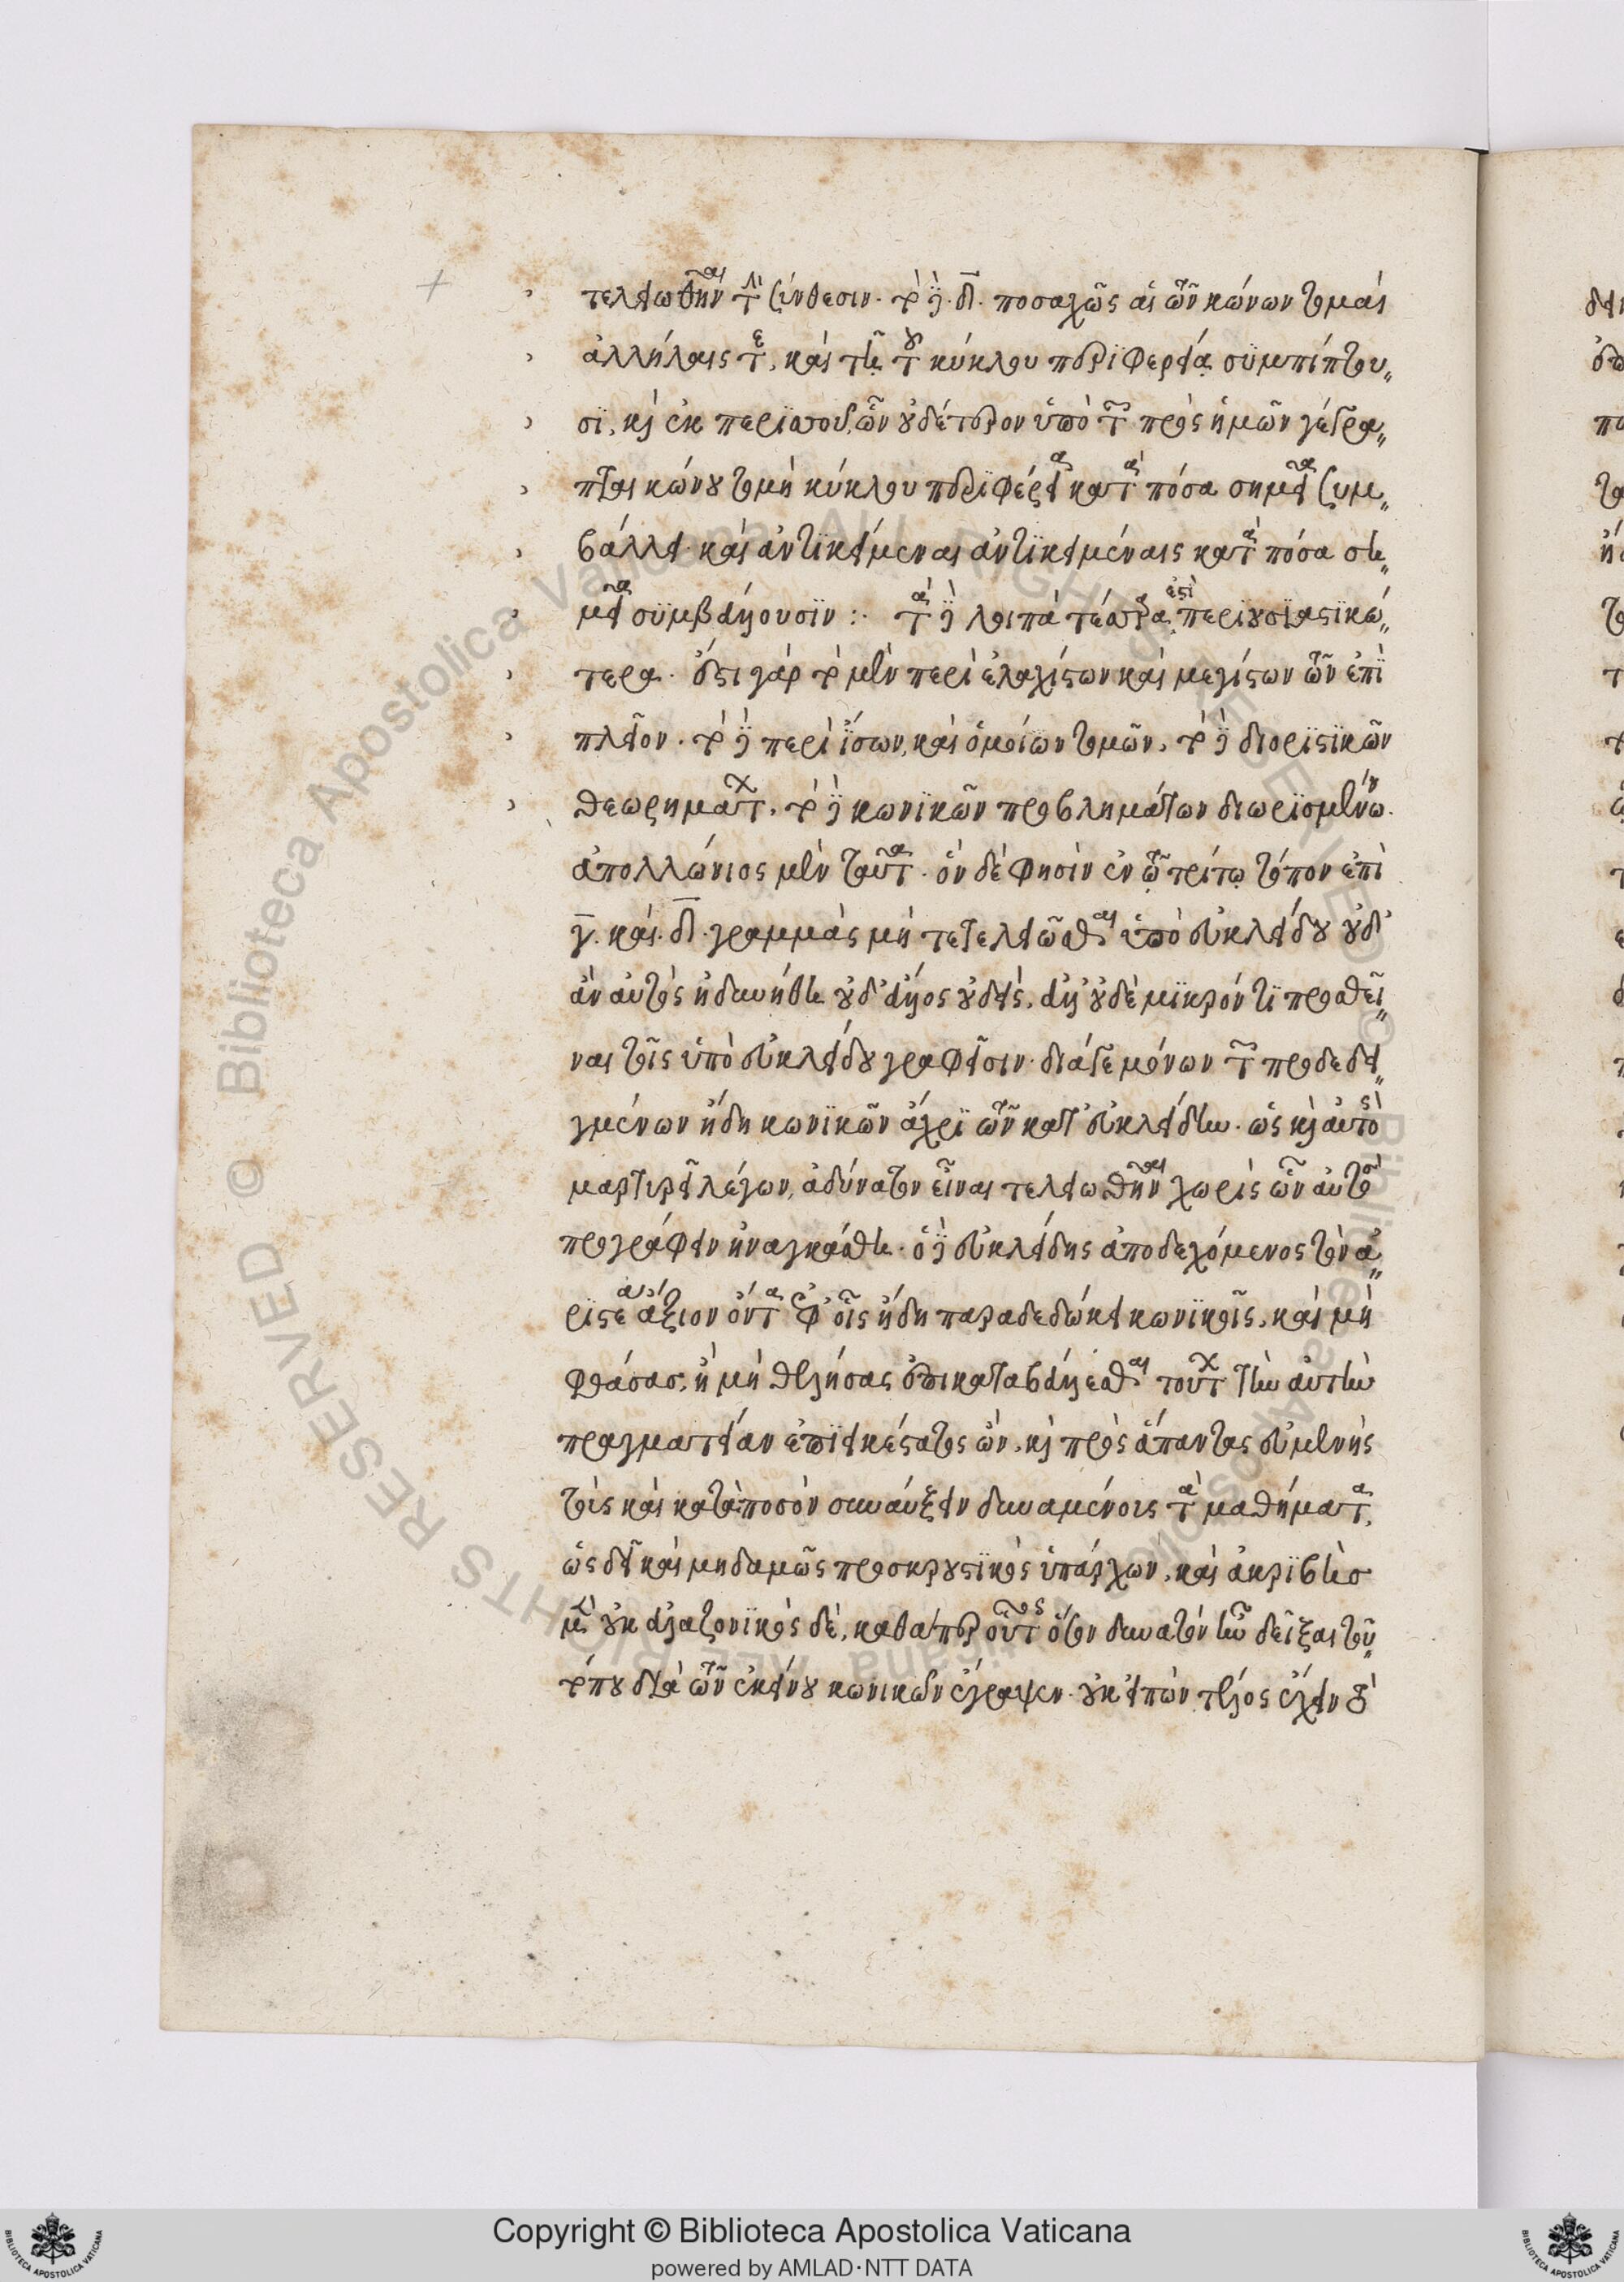 τελειωθῆναι τὴν σύνθεσιν. τὸ δὲ δ̅. ποσαχῶς αἱ τῶν κώνων τομαὶ
ἀλλήλαις τε, καὶ τῇ τοῦ κύκλου περιφερείᾳ συμπίπτου„
σι, καὶ ἐκ περισσοῦ, ὧν οὐδέτερον ὑπὸ τῶν πρὸς ἡμῶν γέγρα„
πται κώνου τομὴ κύκλου περιφέρεια κατὰ πόσα σημεῖα συμ„
βάλλει. καὶ ἀντικείμεναι ἀντικειμέναις κατὰ πόσα ση„
μεῖα συμβάλλουσιν :. τὰ δὲ λοιπὰ τέσσαρα ἐστὶ περιουσιαστικώ„
τερα. ἔστι γὰρ τὸ μὲν περὶ ἐλαχίστων καὶ μεγίστων τῶν ἐπὶ
πλεῖον. τὸ δὲ περὶ ἴσων, καὶ ὁμοίων τομῶν, τὸ δὲ διοριστικῶν
θεωρημάτων, τὸ δὲ κωνικῶν προβλημάτων διωρισμένων.
ἀπολλώνιος μὲν ταῦτα. ὃν δέ φησὶν ἐν τῷ τρίτῳ τόπον ἐπὶ
γ̅. καὶ. δ̅. γραμμὰς μὴ τετελειῶσθαι ὑπὸ εὐκλείδου οὐδ᾽
ἂν αὐτὸς ἠδυνήθη οὐδ᾽ ἄλλος οὐδείς, ἀλλ᾽ οὐδὲ μικρόν τι προσθεῖ„
ναι τοῖς ὑπὸ εὐκλείδου γραφεῖσιν. διά γε μόνων τῶν προδεδει„
γμένων ἤδη κωνικῶν ἄχρι τῶν κατ᾽ εὐκλείδην. ὡς καὶ αὐτὸς
μαρτυρεῖ λέγων, ἀδύνατον εἶναι τελειωθῆναι χωρὶς ὧν αὐτὸς
προγράφειν ἠναγκάσθη. ὁ δὲ εὐκλείδης ἀποδεχόμενος τὸν ἀ„
ρισταῖον ἄξιον ὄντα ἐφ᾽ οἷς ἤδη παραδεδώκει κωνικοῖς, καὶ μὴ
φθάσας, ἢ μὴ θελήσας ἐπικαταβάλλεσθαι τούτων τὴν αὐτὴν
πραγματείαν ἐπιεικέστατος ὢν, καὶ πρὸς ἅπαντας εὐμενὴς
τοὺς καὶ κατὰ ποσὸν συναύξειν δυναμένους τὰ μαθήματα,
ὡς δεῖ καὶ μηδαμῶς προσκρουστικὸς ὑπάρχων, καὶ ἀκριβὴς
μὲν οὐκ ἀλαζονικὸς δὲ, καθάπερ οὗτος ὅσον δυνατὸν ἦν δεῖξαι τοῦ
τόπου διὰ τῶν ἐκείνου κωνικῶν ἔγραψεν. οὐκ εἰπὼν τέλος ἔχειν τὸ